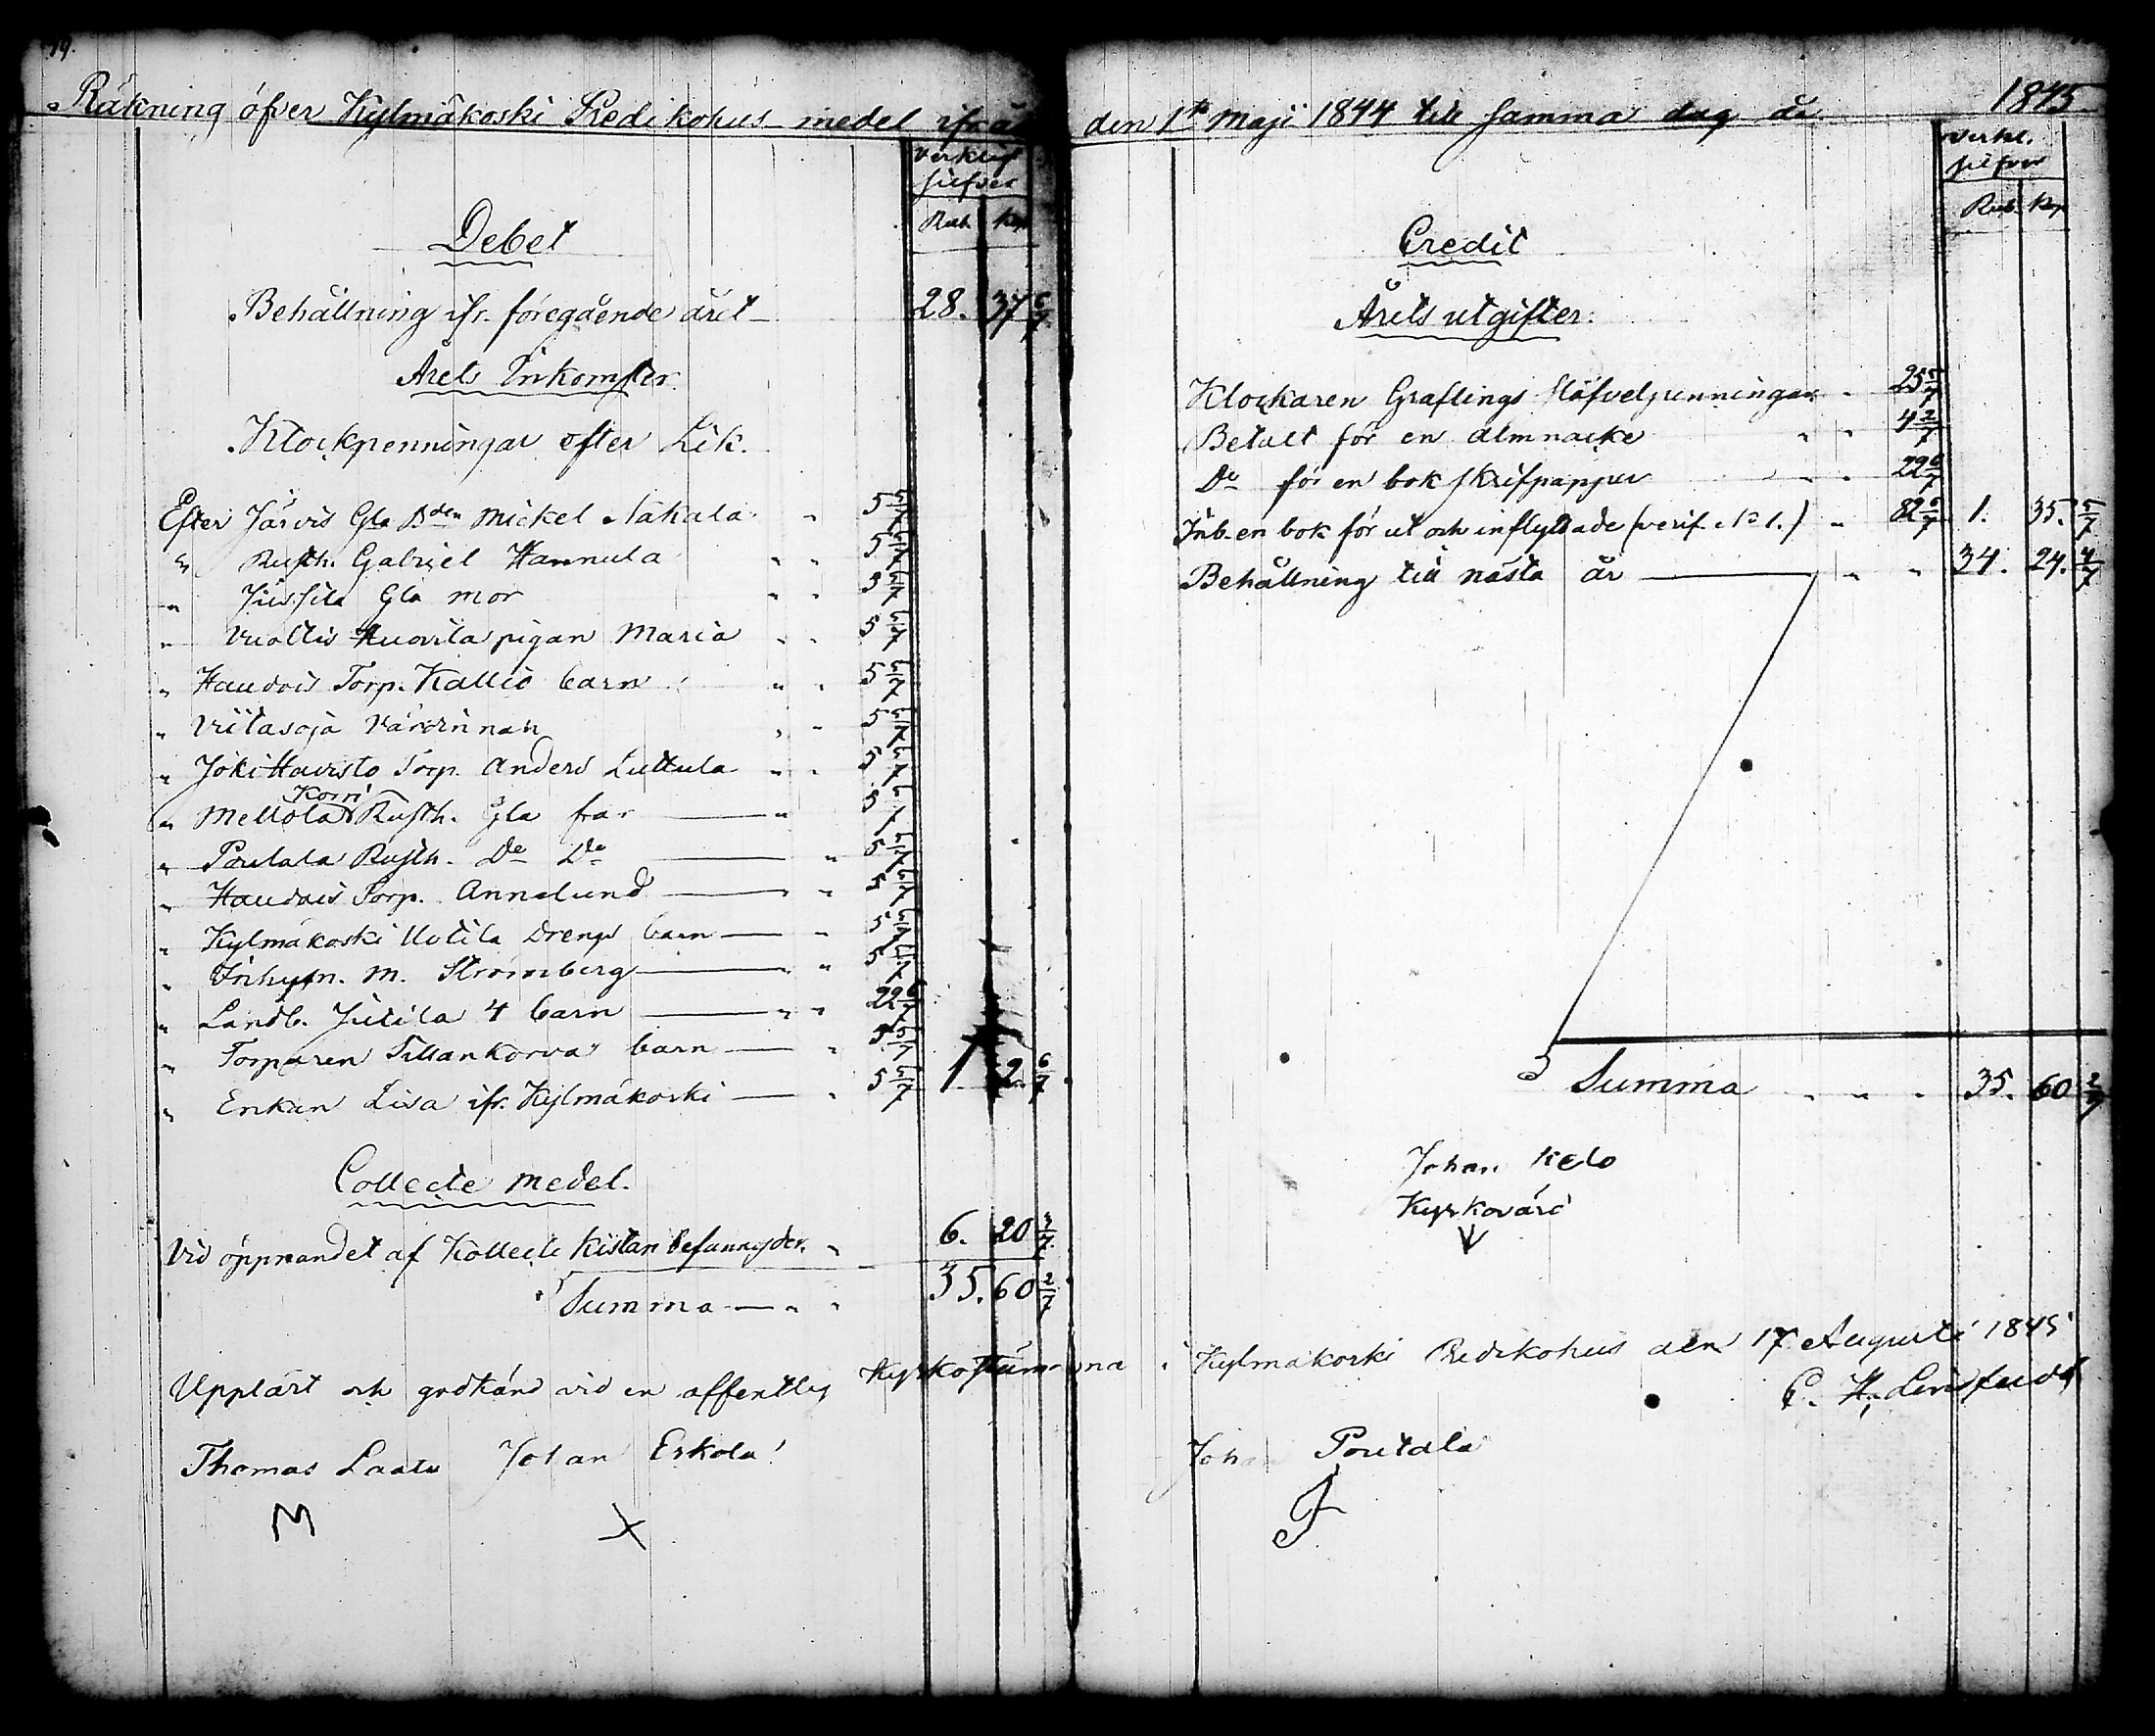 19.
Räkning öfver Kylmäkoski Predikohus medel ifrån den 1ta Maji 1844 till samma dag år 1845
verkligt silfver
Rub. Kop.
Debet
Behållning ifr. föregående året 28. 37 6/7
Årets Inkomster
Klockpenningar efter Lik.
Efter Järvis Gla Bden Mickel Nakala 5 5/7
" Rusth. Gabriel Hannula 5 5/7
" Jussila Gla mor 5 5/7
" Vuoltis Huovila pigan Maria 5 5/7
" Haudois Torp. Kallio barn 5 5/7
" Viitasoja Värdinnan 5 5/7
" Joki Havisto Torp. Anders Luttula 5 5/7
" Mellola Korri Rusth. Gla far 5 5/7
" Poutala Rusth. Do Do 5 5/7
" Haudois Torp. Annalund 5 5/7
" Kylmäkoski Uotila Drengs barn 5 5/7
" Inhysn. M. Strömberg 5 5/7
" Landb. Jutila 4 barn 22 6/7
" Torparen Sillankorva barn 5 5/7
" Enkan Lisa ifr. Kylmäkoski 5 5/7 1 2 6/7
Collecte medel.
Vid öppnandet af Kollect Kistan befunnos der 6. 20 3/7
Summa 35. 60 2/7
verkl. silfver
Rub. Kop
Credit
Årets utgifter:
Klockaren Graflings Stöfvelpenningar 25 5/7
Betalt för en almnacke 4 2/7
Do för en bok skrifpapper 22 6/7
Inb. en bok för ut och inflyttade (verif. No 1.) 82 6/7 1. 35. 5/7
Behållning till nästa år 34. 24. 4/7
Summa 35. 60 2/7
Johan Kelo
Kyrkovärd
Uppläst och godkänd vid en offentlig Kyrkostämma i Kylmäkoski Predikohus den 17 Augusti 1845
Thomas Laate Johan Erkola Johan Poutala
M X